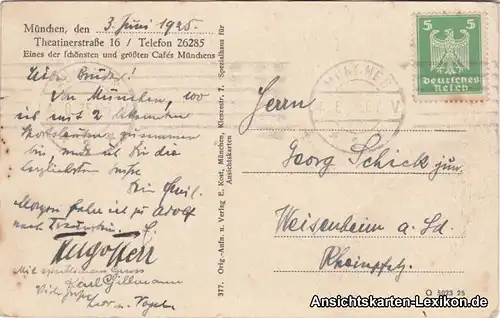 München, den 3. Juni 1925.
Theatinerstraße 16 / Telefon 26285
Eines der schönsten und größten Cafés Münchens
Lieber Bruder!
Von München, wo
ich mit 2 bekannten
zusammen
bin, sende ich Dir die
herzlichsten Grüße
Dein Emil.
Morgen fahre ich zu Adolf
nach
Hugo Herr
Mit Gruss
Karl Gillmann
Viele Grüße
377. Orig.-Aufn. u. Verlag E. Kost, München, Kienzestr. 7. Spezialhaus für
Ansichtskarten
5 5
Deutsches
Reich
MÜNCHEN
V
Herrn
Georg Schick jun.
Weisenheim a. Sd.
Rheinpfalz.
O 5023 25
Ansichtskarten-Lexikon.de